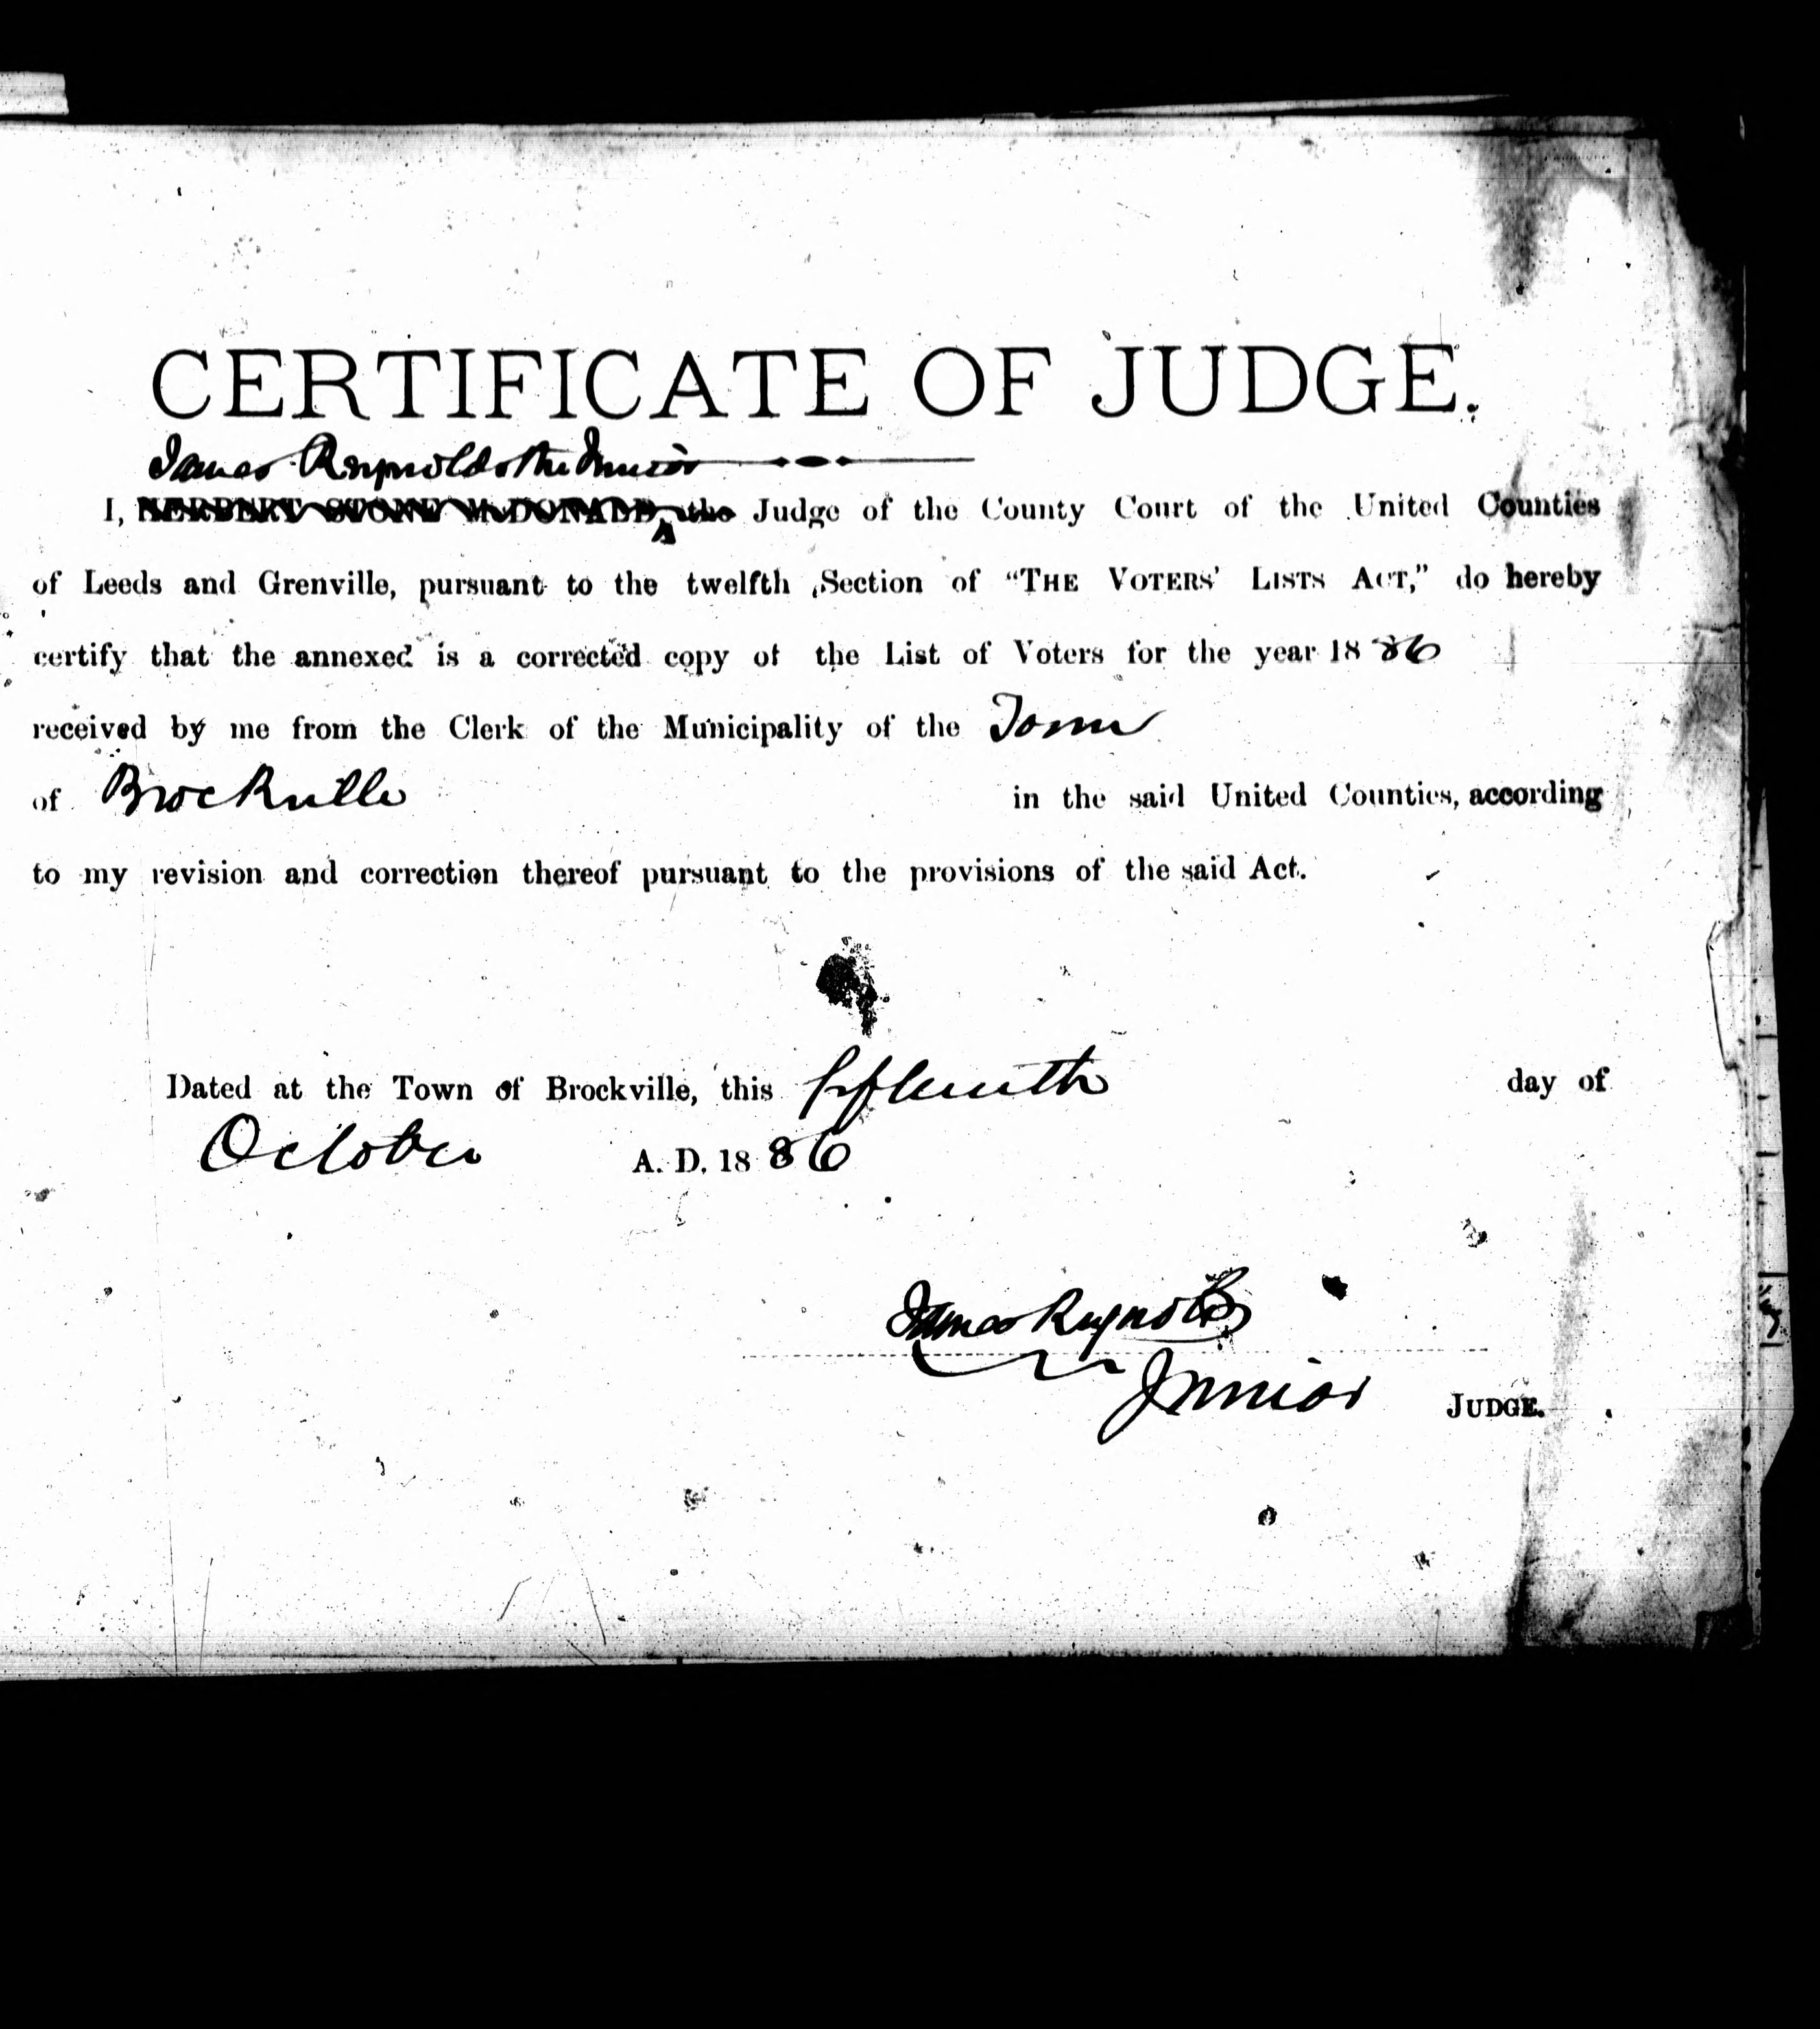 CERTIFICATE OF JUDGE.
James Reynolds the Junior
I, HERBERT STONE McDONALD, the Judge of the County Court of the United Counties
of Leeds and Grenville, pursuant to the twelfth Section of “THE VOTERS’ LISTS ACT,” do hereby
certify that the annexed is a corrected copy of the List of Voters for the year 1886
received by me from the Clerk of the Municipality of the Town
of Brockville in the said United Counties, according
to my revision and correction thereof pursuant to the provisions of the said Act.
Dated at the Town of Brockville, this fifteenth day of
October A. D. 1886
James Reynolds
Junior JUDGE.